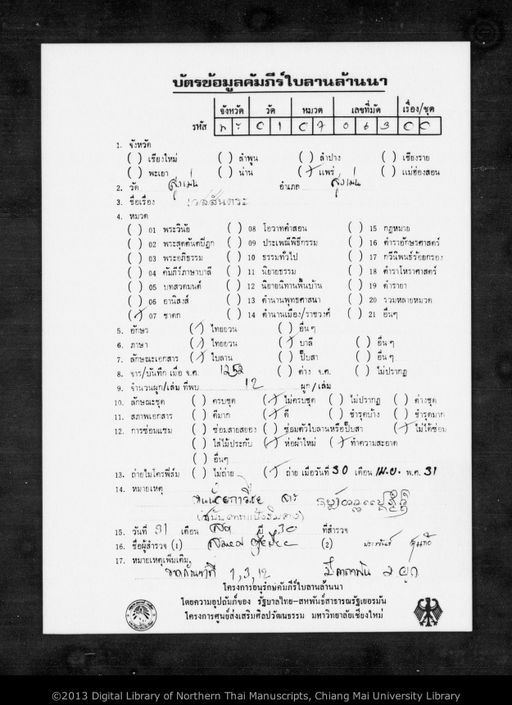 บัตรข้อมูลคัมภีร์ใบลานล้านนา
จังหวัด วัด หมวด เลขที่มัด เรื่อง/ชุด
รหัส 0 1 0 7 0 6 3 0 0
1. จังหวัด
( ) เชียงใหม่ ( ) ลำพูน ( ) ลำปาง ( ) เชียงราย
( ) พะเยา ( ) น่าน (/) แพร่ ( ) แม่ฮ่องสอน
2. วัด สูงเม่น อำเภอ สูงเม่น
3. ชื่อเรื่อง เวสสันตระ
4. หมวด
( ) 01 พระวินัย ( ) 08 โอวาทคำสอน ( ) 15 กฎหมาย
( ) 02 พระสุตตันตปิฎก ( ) 09 ประเพณีพิธีกรรม ( ) 16 ตำราอักษรศาสตร์
( ) 03 พระอภิธรรม ( ) 10 ธรรมทั่วไป ( ) 17 กวีนิพนธ์ร้อยกรอง
( ) 04 คัมภีร์ภาษาบาลี ( ) 11 นิยายธรรม ( ) 18 ตำราโหราศาสตร์
( ) 05 บทสวดมนต์ ( ) 12 นิยายนิทานพื้นบ้าน ( ) 19 ตำรายา
( ) 06 อานิสงส์ ( ) 13 ตำนานพุทธศาสนา ( ) 20 รวมหลายหมวด
(/) 07 ชาดก ( ) 14 ตำนานเมือง/ราชวงศ์ ( ) 21 อื่นๆ
5. อักษร (/) ไทยยวน ( ) อื่นๆ
6. ภาษา (/) ไทยยวน (/) บาลี ( ) อื่นๆ
7. ลักษณะเอกสาร (/) ใบลาน ( ) ปั๊บสา ( ) อื่นๆ
8. จาร/บันทึก เมื่อ จ.ศ. 1252 ( ) ต่าง จ.ศ. ( ) ไม่ปรากฏ
9. จำนวนผูก/เล่ม ที่พบ 12 ผูก/เล่ม
10. ลักษณะชุด ( ) ครบชุด (/) ไม่ครบชุด ( ) ไม่ปรากฏ ( ) ต่างชุด
11. สภาพเอกสาร ( ) ดีมาก (/) ดี ( ) ชำรุดบ้าง ( ) ชำรุดมาก
12. การซ่อมแซม ( ) ซ่อมสายสยอง ( ) ซ่อมตัวใบลานหรือปั๊บสา (/) ไม่ได้ซ่อม
( ) ใส่ไม้ประกับ (/) ห่อผ้าใหม่ (/) ทำความสะอาด
( ) อื่นๆ
13. ถ่ายไมโครฟิล์ม ( ) ไม่ถ่าย (/) ถ่าย เมื่อวันที่ 30 เดือน เม.ย. พ.ศ. 31
14. หมายเหตุ
15. วันที่ 31 เดือน ปี 30 ที่สำรวจ
16. ชื่อผู้สำรวจ (1) (2)
17. หมายเหตุเพิ่มเติม
1, 3, 12 2 ผูก
โครงการอนุรักษ์คัมภีร์ใบลานล้านนา
โดยความอุปถัมภ์ของ รัฐบาลไทย-สหพันธ์สาธารณรัฐเยอรมัน
โครงการศูนย์ส่งเสริมศิลปวัฒนธรรม มหาวิทยาลัยเชียงใหม่
©2013 Digital Library of Northern Thai Manuscripts, Chiang Mai University Library